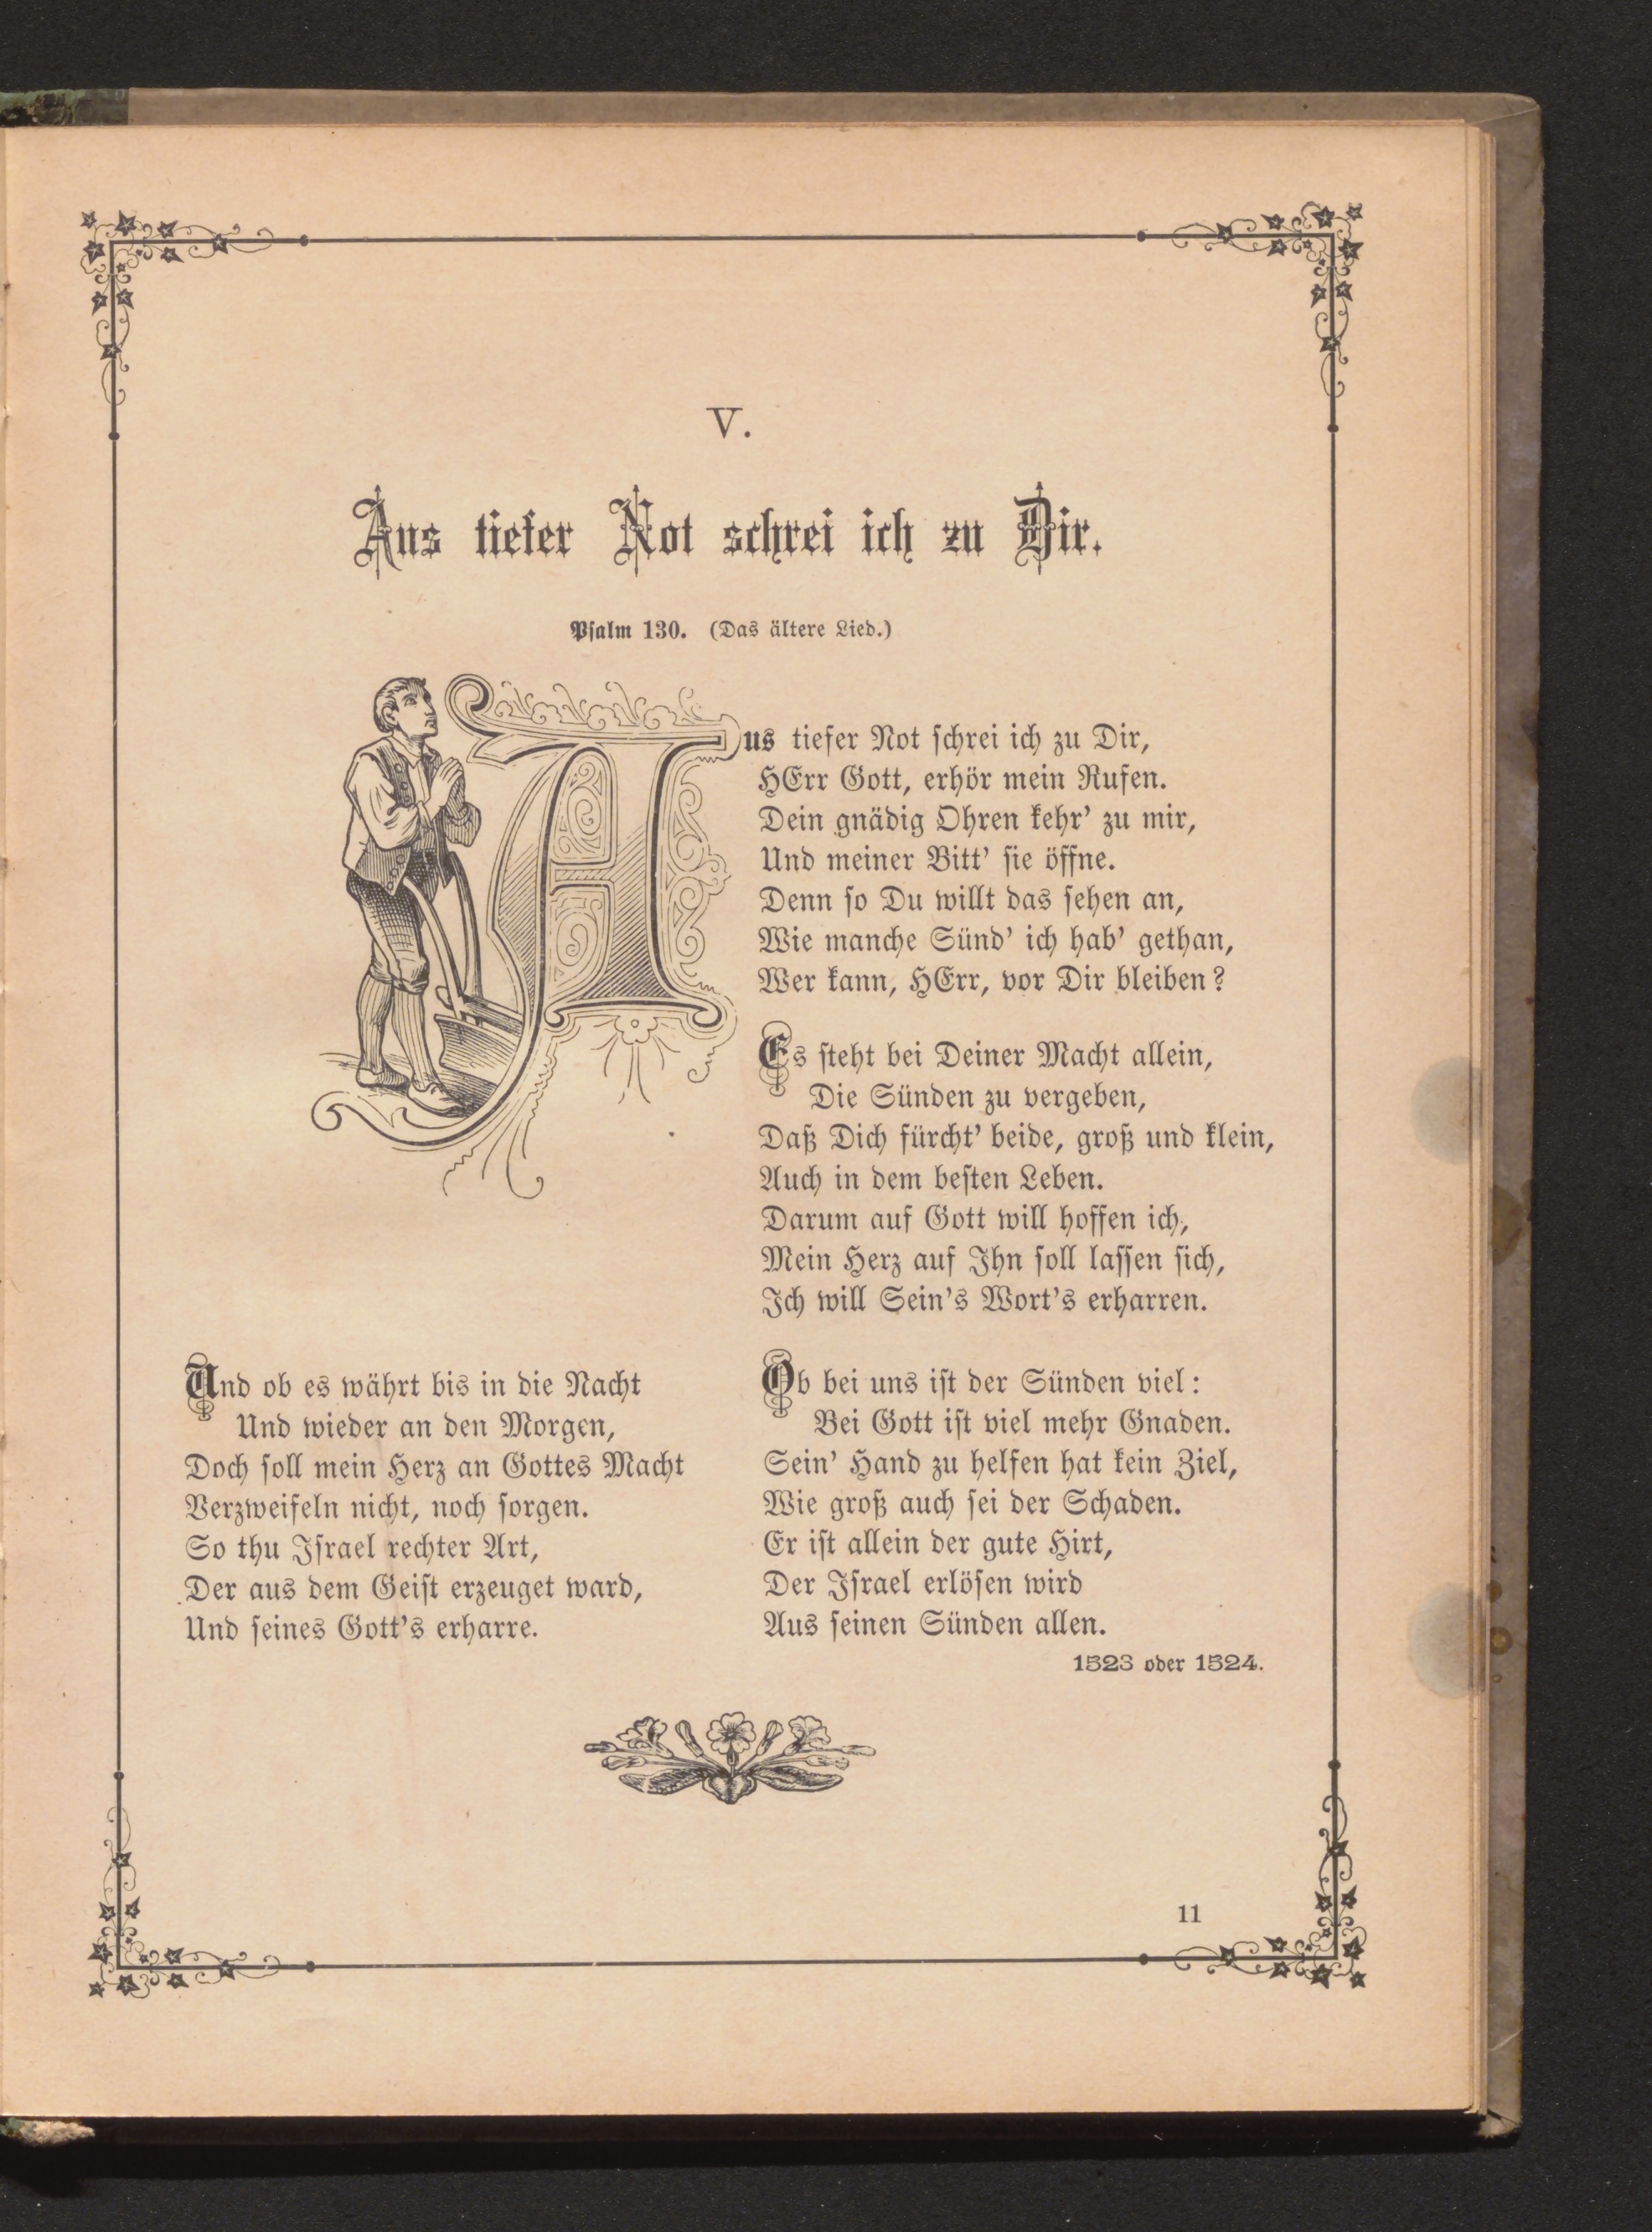 V.
Aus tiefer Not schrei ich zu Dir.
Psalm 130. (Das ältere Lied.)
Aus tiefer Not schrei ich zu Dir,
HErr Gott, erhör mein Rufen.
Dein gnädig Ohren kehr' zu mir,
Und meiner Bitt' sie öffne.
Denn so Du willt das sehen an,
Wie manche Sünd' ich hab' gethan,
Wer kann, HErr, vor Dir bleiben?
Es steht bei Deiner Macht allein,
Die Sünden zu vergeben,
Daß Dich fürcht' beide, groß und klein,
Auch in dem besten Leben.
Darum auf Gott will hoffen ich,
Mein Herz auf Ihn soll lassen sich,
Ich will Sein's Wort's erharren.
Und ob es währt bis in die Nacht
Und wieder an den Morgen,
Doch soll mein Herz an Gottes Macht
Verzweifeln nicht, noch sorgen.
So thu Israel rechter Art,
Der aus dem Geist erzeuget ward,
Und seines Gott's erharre.
Ob bei uns ist der Sünden viel:
Bei Gott ist viel mehr Gnaden.
Sein' Hand zu helfen hat kein Ziel,
Wie groß auch sei der Schaden.
Er ist allein der gute Hirt,
Der Israel erlösen wird
Aus seinen Sünden allen.
1523 oder 1524.
11